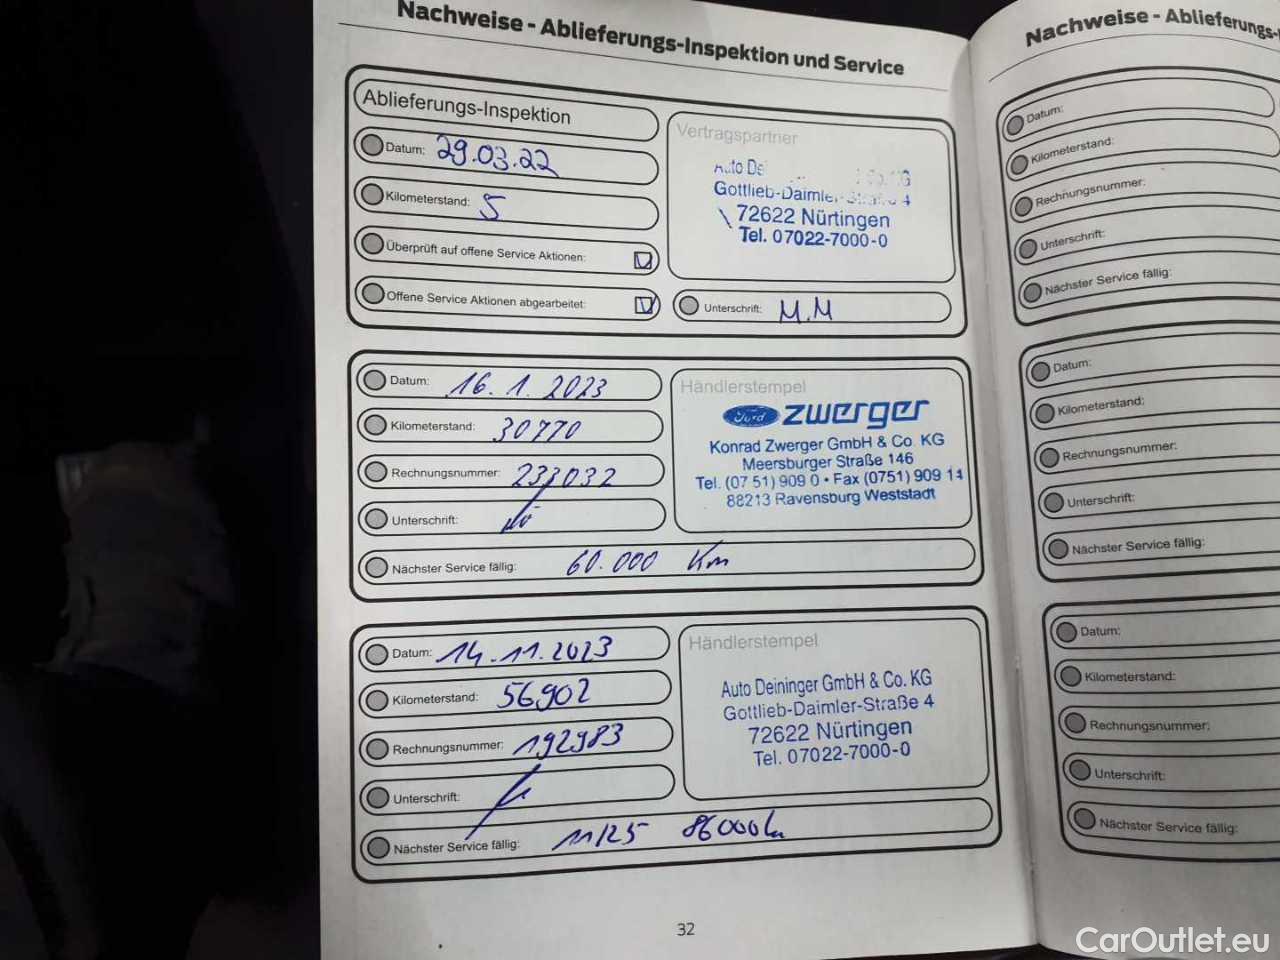 Nachweise - Ablieferungs-Inspektion und Service
Ablieferungs-Inspektion
Datum: 29.03.22
Kilometerstand: 5
Überprüft auf offene Service Aktionen:
Offene Service Aktionen abgearbeitet:
Vertragspartner
Auto
KG
Gottlieb-Daimler-Straße 4
72622 Nürtingen
Tel. 07022-7000-0
Unterschrift: M.M
Datum: 16.1.2023
Kilometerstand: 30770
Rechnungsnummer: 233032
Unterschrift:
Nächster Service fällig: 60.000 Km
Händlerstempel
Ford zwerger
Konrad Zwerger GmbH & Co. KG
Meersburger Straße 146
Tel. (07 51) 909 0 • Fax (0751) 909 14
88213 Ravensburg Weststadt
Datum: 14.11.2023
Kilometerstand: 56902
Rechnungsnummer: 192983
Unterschrift:
Nächster Service fällig: 11/25 86000km
Händlerstempel
Auto Deininger GmbH & Co. KG
Gottlieb-Daimler-Straße 4
72622 Nürtingen
Tel. 07022-7000-0
32
Nachweise - Ablieferungs-
Datum:
Kilometerstand:
Rechnungsnummer:
Unterschrift:
Nächster Service fällig:
Datum:
Kilometerstand:
Rechnungsnummer:
Unterschrift:
Nächster Service fällig:
Datum:
Kilometerstand:
Rechnungsnummer:
Unterschrift:
Nächster Service fällig:
CarOutlet.eu